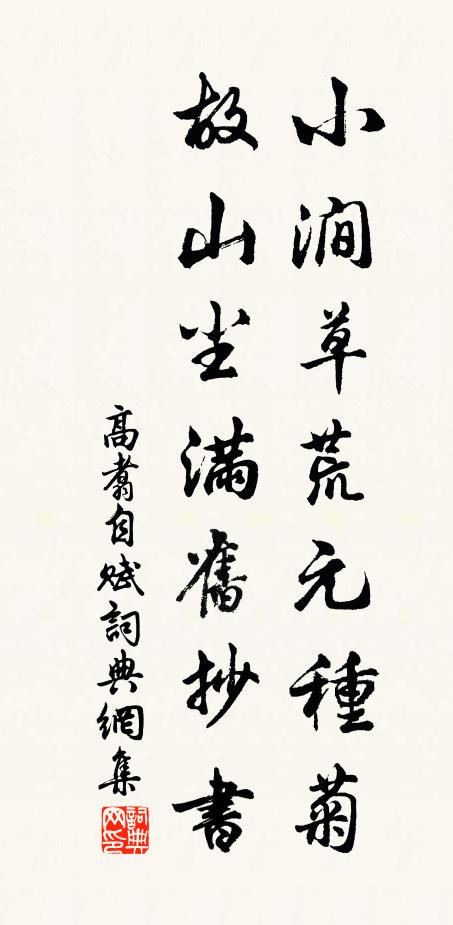 小澗草荒元種菊
故山尘滿舊抄書
高翥自賦詞典網集
詞典网印